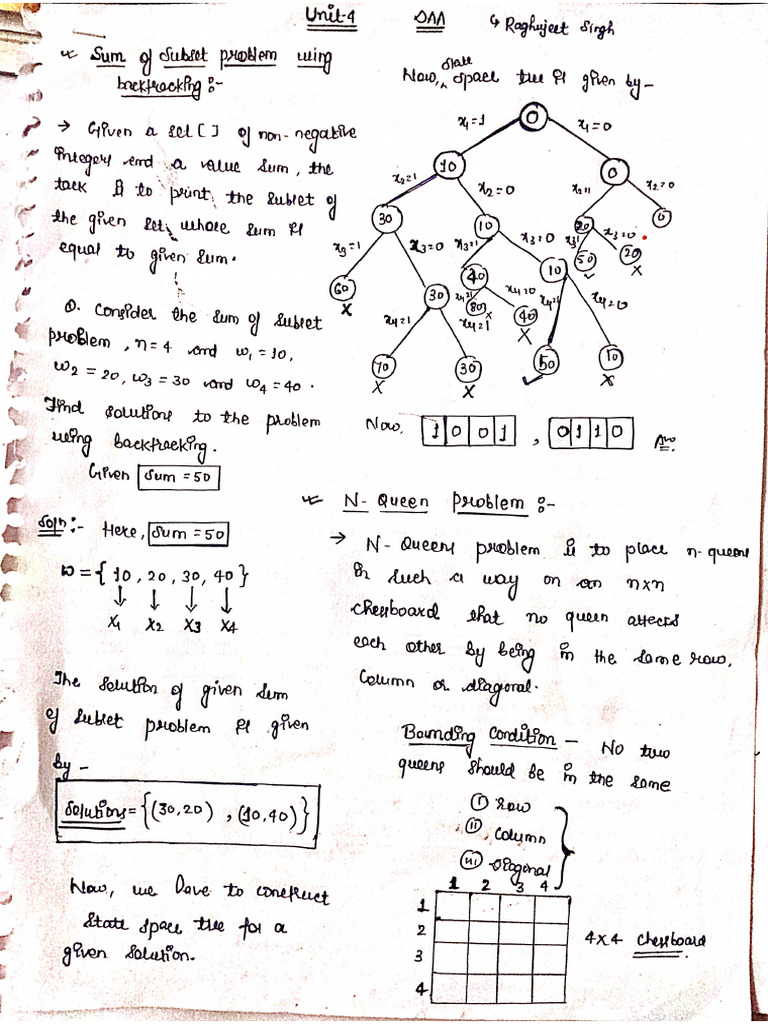 Unit-4
DAA
Raghujeet Singh
Sum of Subset problem using
backtracking :-
→ Given a set [ ] of non-negative
integers and a value sum, the
task is to print the subset of
the given set, whose sum is
equal to given sum.
Q. Consider the sum of subset
problem, n=4 and w₁ = 10,
w₂ = 20, w₃ = 30 and w₄ = 40.
Find solutions to the problem
using backtracking.
Given Sum = 50
Soln :- Here, Sum = 50
w = { 10, 20, 30, 40 }
↓ ↓ ↓ ↓
X₁ X₂ X₃ X₄
The solution of given sum
of subset problem is given
by -
Solutions = {(30,20), (10,40)}
Now, we have to construct
state space tree for a
given solution.
Now, state space tree is given by -
0
x₁=1 x₁=0
10 0
x₂=1 x₂=0 x₂=1 x₂=0
30 10 20 0
x₃=1 x₃=0 x₃=1 x₃=0 x₃=1 x₃=0
60 30 40 10 50 20
x ✓ x
x₄=1 x₄=1 x₄=0 x₄=1 x₄=0
80 40
x₄=1
x x
70 30 50 10
x x ✓ x
Now, 1 0 0 1 , 0 1 1 0 Ans.
N-Queen Problem :-
→ N-Queens problem is to place n-queens
in such a way on an nxn
chessboard that no queen attacks
each other by being in the same row,
column or diagonal.
Bounding Condition - No two
queens should be in the same
(i) Row
(ii) Column
(iii) Diagonal
1 2 3 4
1
2
3
4
4x4 Chessboard